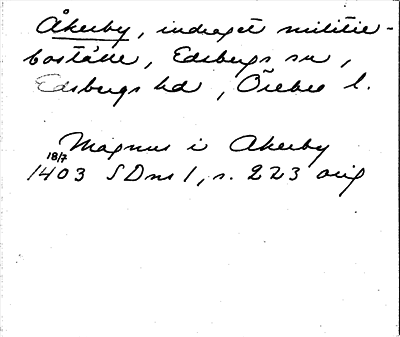 Åkerby, indraget militie-
boställe, Edsbergs sn,
Edsbergs hd, Örebro l.
Magnus i Akerby
18/7
1403 SDns 1, s. 223 orig